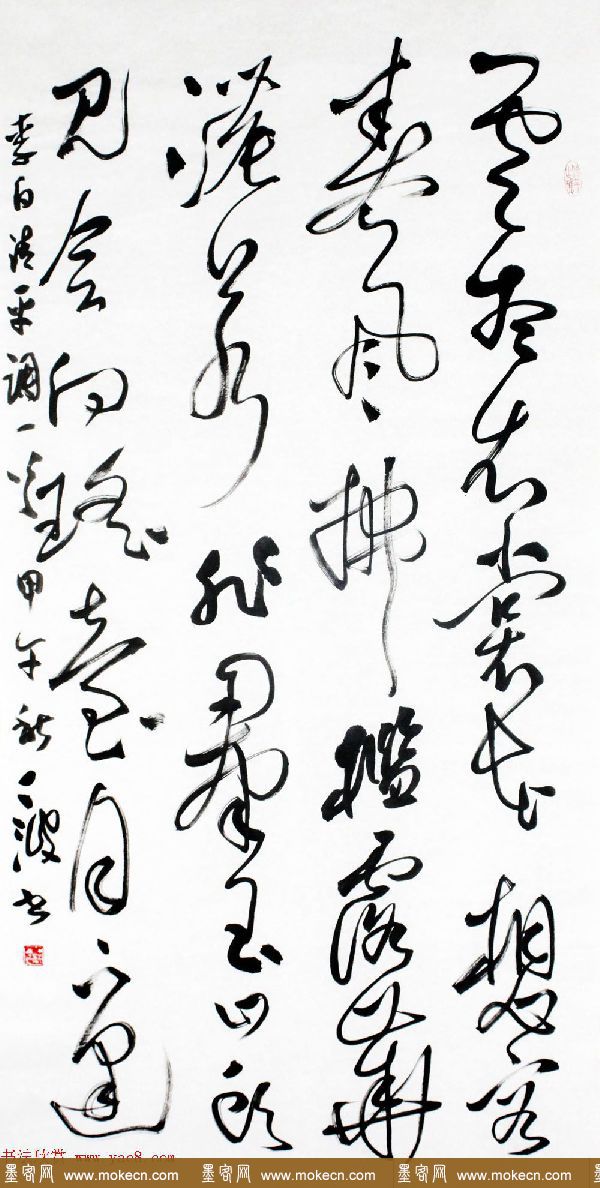 雲想衣裳花想容
春风拂檻露華
濃若非羣玉山頭
见会向瑶臺月下逢
李白清平調一首甲午秋 波书
书法欣赏 www.yac8.com
墨客网 www.mokecn.com 墨客网 www.mokecn.com 墨客网 www.mokecn.com